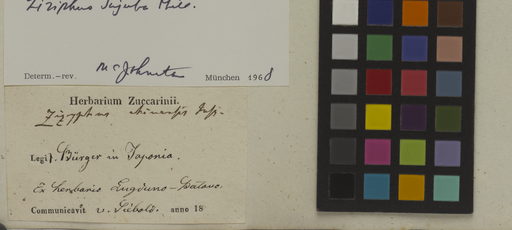 Ziziphus Jujuba Mill.
Determ.-rev. McJohnston München 1968
Herbarium Zuccarinii.
Zizyphus chinensis
Legit. Bürger in Japonia.
Ex herbario Lugduno-Batavo.
Communicavit v. Siebold. anno 18